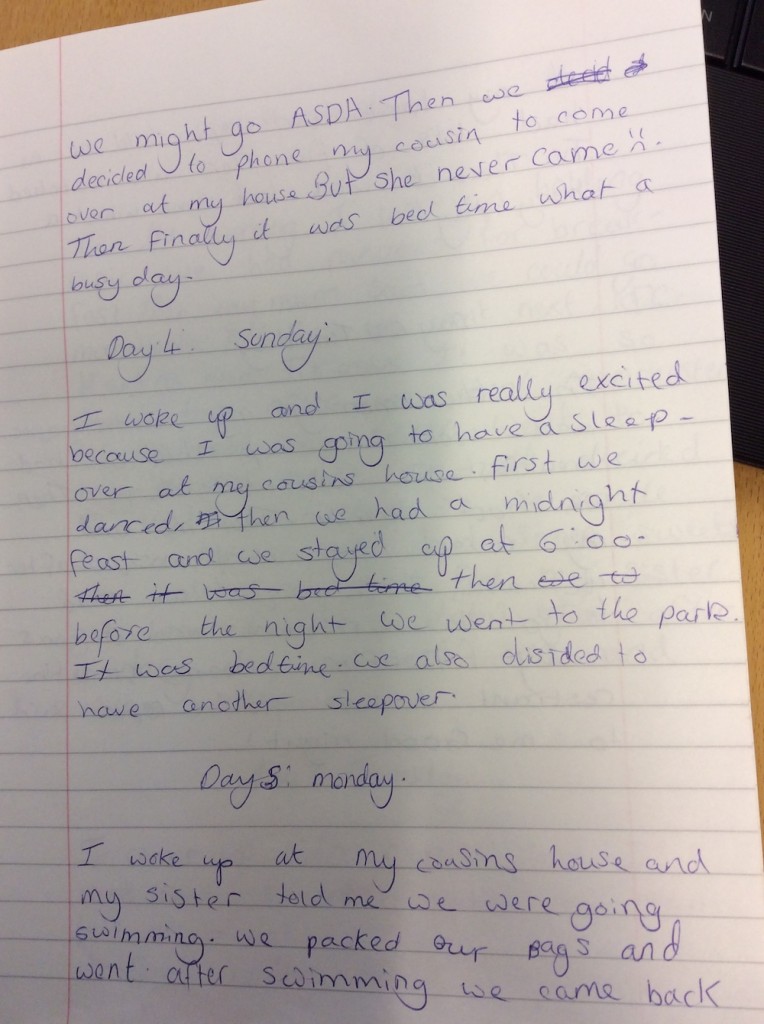 we might go ASDA. Then we
decided to phone my cousin to come
over at my house. But she never came :(.
Then finally it was bed time what a
busy day.
Day 4: Sunday.
I woke up and I was really excited
because I was going to have a sleep-
over at my cousins house. first we
danced, then we had a midnight
feast and we stayed up at 6:00.
then it was bed time then we to
before the night we went to the park.
It was bedtime. we also disided to
have another sleepover.
Day 5: monday.
I woke up at my cousins house and
my sister told me we were going
swimming. we packed our bags and
went. after swimming we came back